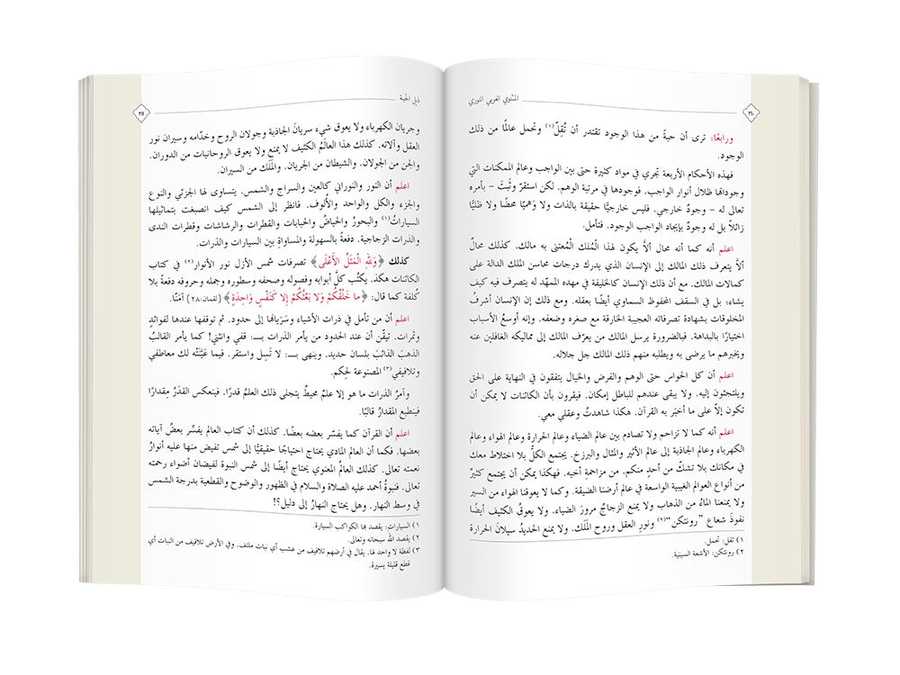 المثنوي العربي النوري
ورابعًا: ترى أن حبةً من هذا الوجود تقتدر أن تُقِلّ(١) وتحمل عالمًا من ذلك
الوجود.
فهذه الأحكام الأربعة تجري في مواد كثيرة حتى بين الواجب وعالم الممكنات التي
وجوداتها ظلال أنوار الواجب، فوجودها في مرتبة الوهم، لكن استقرّ وثَبت - بأمره
تعالى له - وجودٌ خارجي، فليس خارجيًّا حقيقة بالذات ولا وَهميًّا محضًا ولا ظليًّا
زائلاً بل له وجودٌ بإيجاد الواجب الوجود. فتأمل.
اعلم أنه كما أنه محال ألاّ يكون لهذا المُلك المُعتنى به مالك. كذلك محالٌ
ألاّ يتعرف ذلك المالك إلى الإنسان الذي يدرك درجات محاسن الملك الدالة على
كمالات المالك. مع أن ذلك الإنسان كالخليفة في مهده الممهّد له يتصرف فيه كيف
يشاء؛ بل في السقف المحفوظ السماوي أيضًا بعقله. ومع ذلك إن الإنسان أشرفُ
المخلوقات بشهادة تصرفاته العجيبة الخارقة مع صغره وضعفه. وإنه أوسعُ الأسباب
اختيارًا بالبداهة. فبالضرورة يرسل المالك من يعرّف المالك إلى مماليكه الغافلين عنه
ويخبرهم ما يرضى به ويطلبه منهم ذلك المالك جل جلاله.
اعلم أن كل الحواس حتى الوهم والفرض والخيال يتفقون في النهاية على الحق
ويلتجئون إليه. ولا يبقى عندهم للباطل إمكان. فيقرون بأن الكائنات لا يمكن أن
تكون إلاّ على ما أخبَر به القرآن. هكذا شاهدتُ وعقلي معي.
اعلم أنه كما لا تزاحم ولا تصادم بين عالم الضياء وعالم الحرارة وعالم الهواء وعالم
الكهرباء وعالم الجاذبة إلى عالم الأثير والمثال والبرزخ. يجتمع الكلُّ بلا اختلاط معك
في مكانك بلا تشكّ من أحدٍ منكم. من مزاحمةِ أخيه. فهكذا يمكن أن يجتمع كثيرٌ
من أنواع العوالم الغيبية الواسعة في عالم أرضنا الضيقة. وكما لا يعوقنا الهواء من السير
ولا يمنعنا الماءُ من الذهاب ولا يمنع الزجاجُ مرورَ الضياء. ولا يعوقُ الكثيف أيضًا
نفوذَ شعاع "رونتكن"(٢) ونورِ العقل وروحِ الملَك. ولا يمنع الحديدُ سيلانَ الحرارة
١) تقل: تحمل.
٢) رونتكن: الأشعة السينية.
ذيل الحبة
وجريان الكهرباء ولا يعوق شيء سريانَ الجاذبة وجولان الروح وخدّامه وسيران نور
العقل وآلاته. كذلك هذا العالَمُ الكثيف لا يمنع ولا يعوق الروحانيات من الدوران.
والجن من الجولان. والشيطان من الجريان. والملَك من السيران.
اعلم أن النور والنوراني كالعين والسراج والشمس. يتساوى لها الجزئي والنوع
والجزء والكلي والواحد والألوف. فانظر إلى الشمس كيف انصبغت بتماثيلها
السياراتُ(١) والبحورُ والحياضُ والحبابات والقطرات والرشاشات وقطرات الندى
والذرات الزجاجية. دفعةً بالسهولة والمساواة بين السيارات والذرات.
كذلك ﴿وَلِلَّهِ الْمَثَلُ الْأَعْلَى﴾ تصرفات شمس الأزل نور الأنوار(٢) في كتاب
الكائنات هكذا. يكتُب كلَّ أبوابه وفصوله وصحفه وسطوره وجمله وحروفه دفعةً بلا
كُلفة كما قال: ﴿مَا خَلْقُكُمْ وَلَا بَعْثُكُمْ إِلَّا كَنَفْسٍ وَاحِدَةٍ﴾ (لقمان:٢٨) آمَنّا.
اعلم أن من تأمل في ذرات الأشياء وسَرَيانها إلى حدود. ثم توقفها عندها لفوائدَ
وثمرات. تيقّن أن عند الحدود من يأمر الذرات بـ: قفي وانثني! كما يأمر القالبُ
الذهبَ الذائبَ بلسان حديد. وينهى بـ: لا تَسِل واستقر. فيما عَيَّنَتْه لك معاطفي
وتلافيفي(٣) المصنوعة لحِكم.
وآمرُ الذرات ما هو إلا علمٌ محيطٌ يتجلى ذلك العلمُ قدرًا. فينعكس القدَرُ مقدارًا
فينطبع المقدارُ قالبًا.
اعلم أن القرآن كما يفسر بعضه بعضًا. كذلك أن كتاب العالم يفسّر بعضُ آياته
بعضها. فكما أن العالم المادي يحتاج احتياجًا حقيقيًّا إلى شمس تفيض منها عليه أنوارُ
نعمته تعالى. كذلك العالمُ المعنوي يحتاج أيضًا إلى شمس النبوة لفيضان أضواء رحمته
تعالى. فنبوةُ أحمد عليه الصلاة والسلام في الظهور والوضوح والقطعية بدرجة الشمس
في وسط النهار. وهل يحتاج النهارُ إلى دليل؟!
١) السيارات: يقصد بها الكواكب السيارة.
٢) يقصد الله سبحانه وتعالى.
٣) لفظة لا واحد لها. يقال في أرضهم تلافيف من عشب أي نبات ملتف. وفي الأرض تلافيف من النبات أي
قطع قليلة يسيرة.